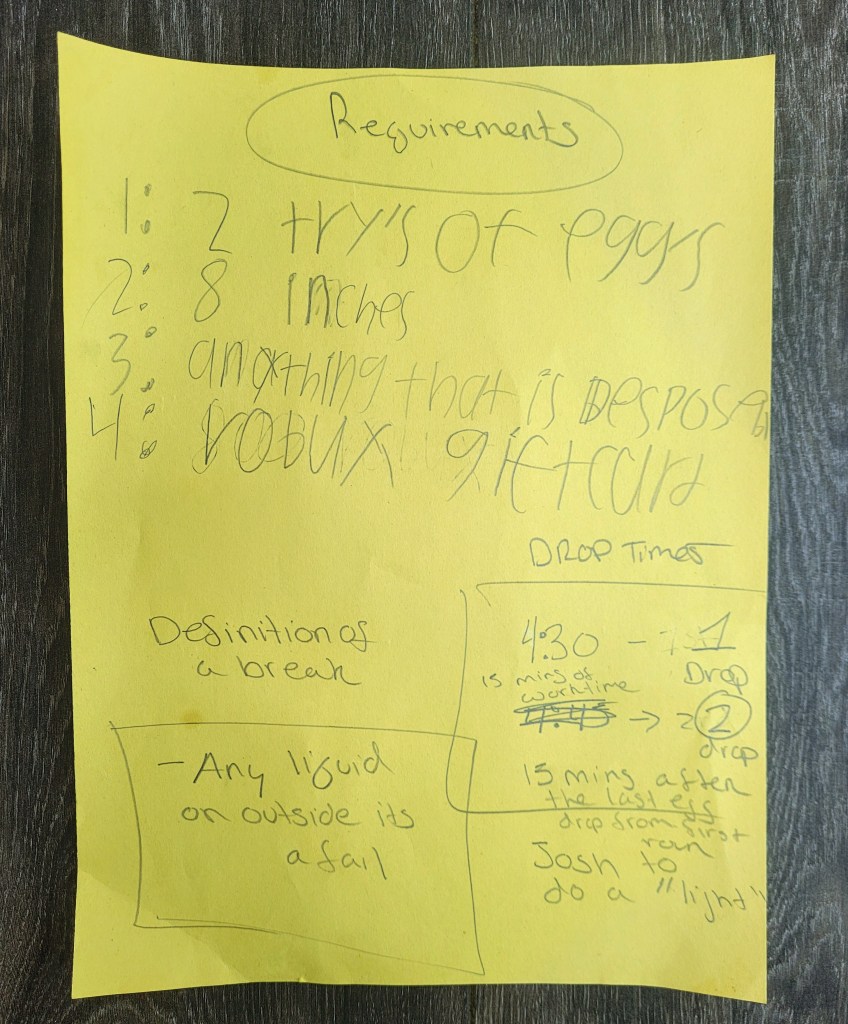 Requirements
1: 2 try's of eggs
2: 8 inches
3: anything that is Desposeabl
4: robux giftcard
DROP Times
4:30 - 1
Drop
15 mins of
worktime
4:45 → 2
drop
15 mins after
the last egg
drop from first
ran
Josh to
do a "light"
Definition of
a break
- Any liquid
on outside its
a fail